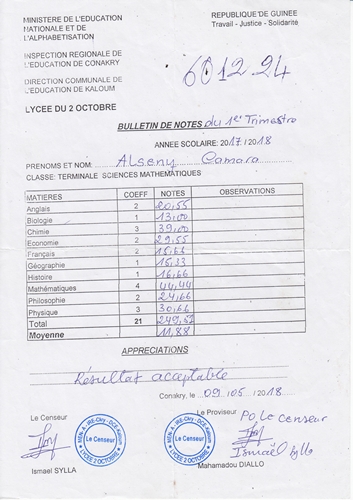 MINISTERE DE L'EDUCATION
NATIONALE ET DE
L'ALPHABETISATION
REPUBLIQUE DE GUINEE
Travail - Justice - Solidarité
INSPECTION REGIONALE DE
L'EDUCATION DE CONAKRY
6012.24
DIRECTION COMMUNALE DE
L'EDUCATION DE KALOUM
LYCEE DU 2 OCTOBRE
BULLETIN DE NOTES du 1er Trimestre
ANNEE SCOLAIRE: 2017/2018
PRENOMS ET NOM: Alseny Camara
CLASSE: TERMINALE SCIENCES MATHÉMATIQUES
MATIERES COEFF NOTES OBSERVATIONS
Anglais 2 20,55
Biologie 1 13,00
Chimie 3 39,00
Economie 2 29,55
Français 2 15,66
Géographie 1 15,33
Histoire 1 16,66
Mathématiques 4 44,44
Philosophie 2 24,66
Physique 3 30,66
Total 21 249,52
Moyenne 11,88
APPRECIATIONS
Résultat acceptable
Conakry, le 09/05/2018
Le Censeur
Le Proviseur
PO le censeur
Le Censeur
LYCEE 2 OCTOBRE
Le Censeur
LYCEE 2 OCTOBRE
Ismaël Sylla
Ismael SYLLA
Mahamadou DIALLO